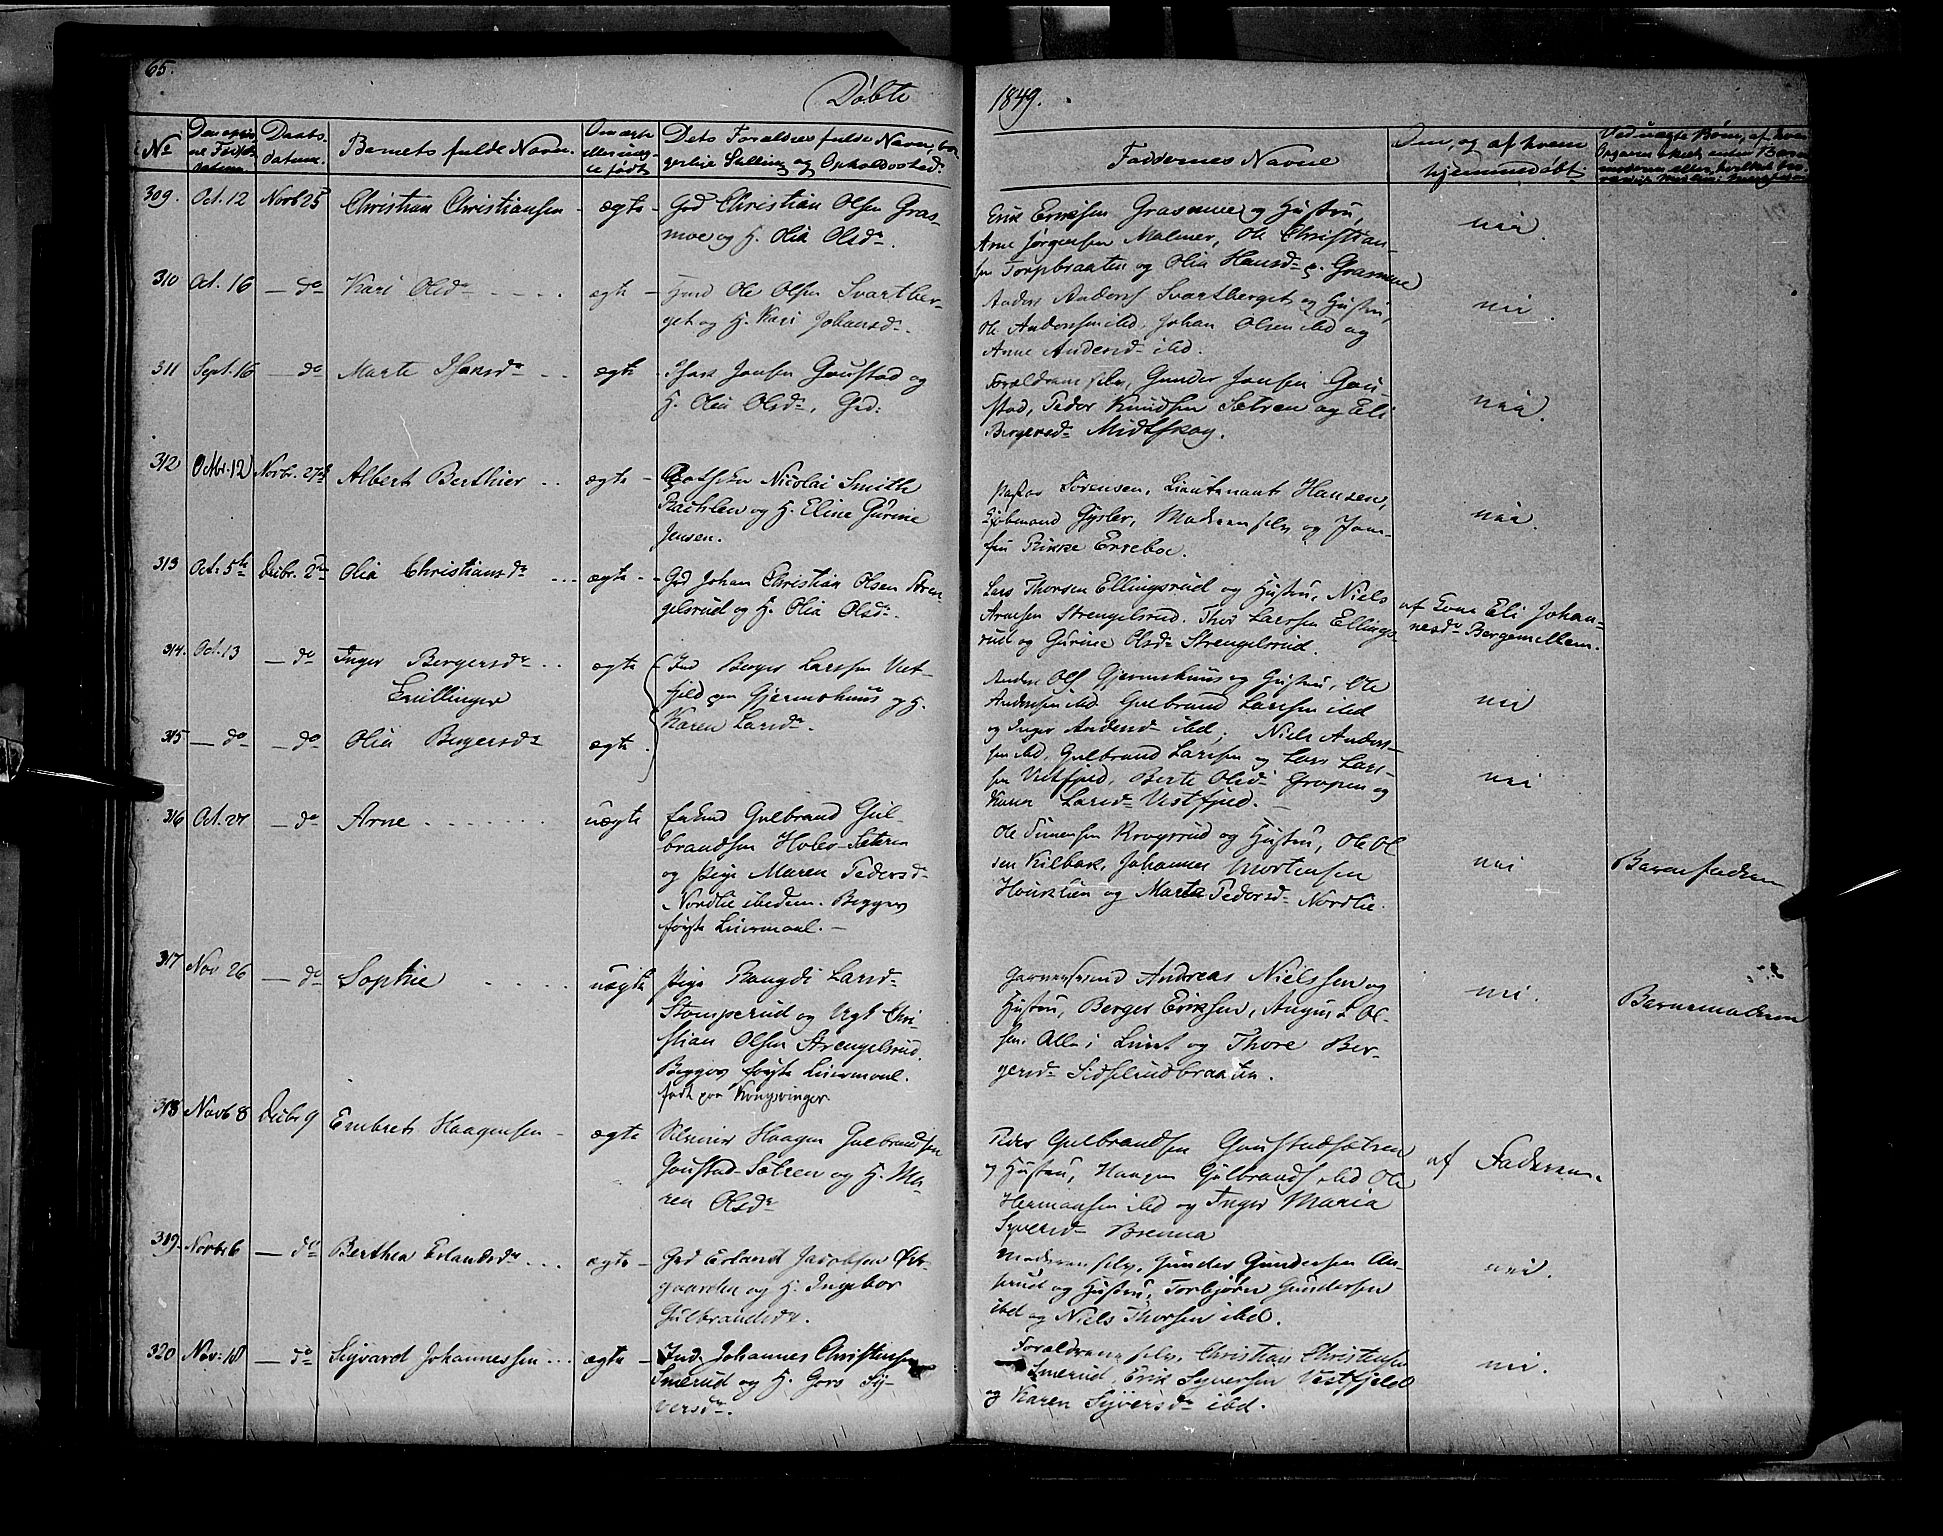 65.
Døbte
1849.
No
Daabs-
datum.
Barnets fulde Navn.
Dets Forældres fulde Navn, bor-
gerlige Stilling og Opholdssted.
Faddernes Navne
Om, og af hvem
hjemmedøbt.
309. Oct. 12 Novb 25 Christian Christiansen - ægte - Grd Christian Olsen Gras-
moe og H. Olia Olsdr.
Erik Eriksen Grasmoe og Hustru,
Arne Jørgensen Malmer, Ole Christian-
sen Torpbraaten og Olia Hansdr Grasmoe
nei.
310 Oct. 16 — do Kari Olsdr ægte - Ole Olsen Svartber-
get og H. Kari Johansdr.
Anders Anders Svartberget og Hustru,
Ole Anderssen ibd, Johan Olsen ibd og
Anne Andersdr ibd.
nei.
311 Sept. 16 — do Marte ægte Jonsen Goustad og
H. Olia Olsdr, Grd:
Forældrene selv, Gunder Jonsen Gou-
stad, Peder Knudsen Sætren og Eli
Bergersdr Midtskog.
nei.
312 Octbr. 12 Novbr. 27de Albert Berthier .. ægte - Nicolai Smith
og H. Eline Gurine
Jensen.
Pastor Sørensen, Lieutenant Hansen,
Kjøbmand Gysler, Moderen selv og Jom-
fru Rikke Erreboe.
nei.
313 Oct. 5te Decbr. 2den Olia Christiansdr ... ægte - Grd Johan Christian Olsen Stren-
gelsrud og H. Olia Olsdr.
Lars Thorsen Ellingsrud og Hustru, Niels
Arnesen Strengelsrud. Thor Larssen Ellings-
rud og Gurine Olsdr Strengelsrud.
af Kone Eli Johan-
nesdr Bergemellem.
314. Oct. 13 — do Inger Bergersdr .. ægte Ind Berger Larssen Vest-
Tvillinger
fjeld paa Gjermshuus og H.
Karen Larsdr.
Anders Ols Gjermshuus og Hustru, Ole
Anderssen ibd. Gulbrand Larssen ibd
og Inger Andersdr ibd;
nei
315 — do — do Olia Bergersdr ægte.
Niels Anders-
sen ibd, Gulbrand Larssen og Lars Lars-
sen Vestfjeld, Berte Olsdr Gropen og
Karen Larsdr Vestfjeld.
nei
316 Oct. 27 — do Arne uægte Enkmd Gulbrand Gul-
brandsen Holer-Sætren
og Pige Maren Pedersdr
Nordlie ibedem. Begges
første Leiermaal.
Ole Simensen Krogsrud og Hustru, Ole Ol-
sen Kilbak, Johannes Mortensen
og Marte Pedersdr Nordlie.
nei
Barnefadren
317 Nov 26 — do Sophie uægte Pige Rangdi Larsdr
Stomperud og Ugk Chri-
stian Olsen Strengelsrud.
Begges første Leiermaal.
født paa Kongsvinger
Andreas Nielssen og
Hustru, Berger Eriksen, August Ol-
sen. Alle i Lunt og Thore Ber-
gersdr Sidselrudbraaten.
nei.
Barnemoderen
318 Novb 8 Decbr 9 Embret Haagensen - ægte Haagen Gulbrandsen
Goustad-Sætren og H. Ma-
ren Olsdr
Peder Gulbrandsen Goustadsætren
og Hustru, Haagen Gulbrands. ibd Ole
Hermansen ibd og Inger Maria
Syversdr Brenna
af Faderen.
319 Novbr 6 — do Berthea Erlandsdr ... ægte - Grd Erland Jacobsen
gaarden og H. Ingebor
Gulbrandsdr.
Moderen selv, Gunder Gundersen
og Hustru, Torbjørn Gundersen
ibd og Niels Thorsen ibd.
nei.
320 Nov. 18 — do Sigvard Johannessen ... ægte - Ind. Johannes Christensen
Smerud og H. Goro Sy-
versdr.
Forældrene selv, Christian Christensen
Smerud, Erik Syversen Vestfjeld
og Karen Syversdr ibd.
nei.